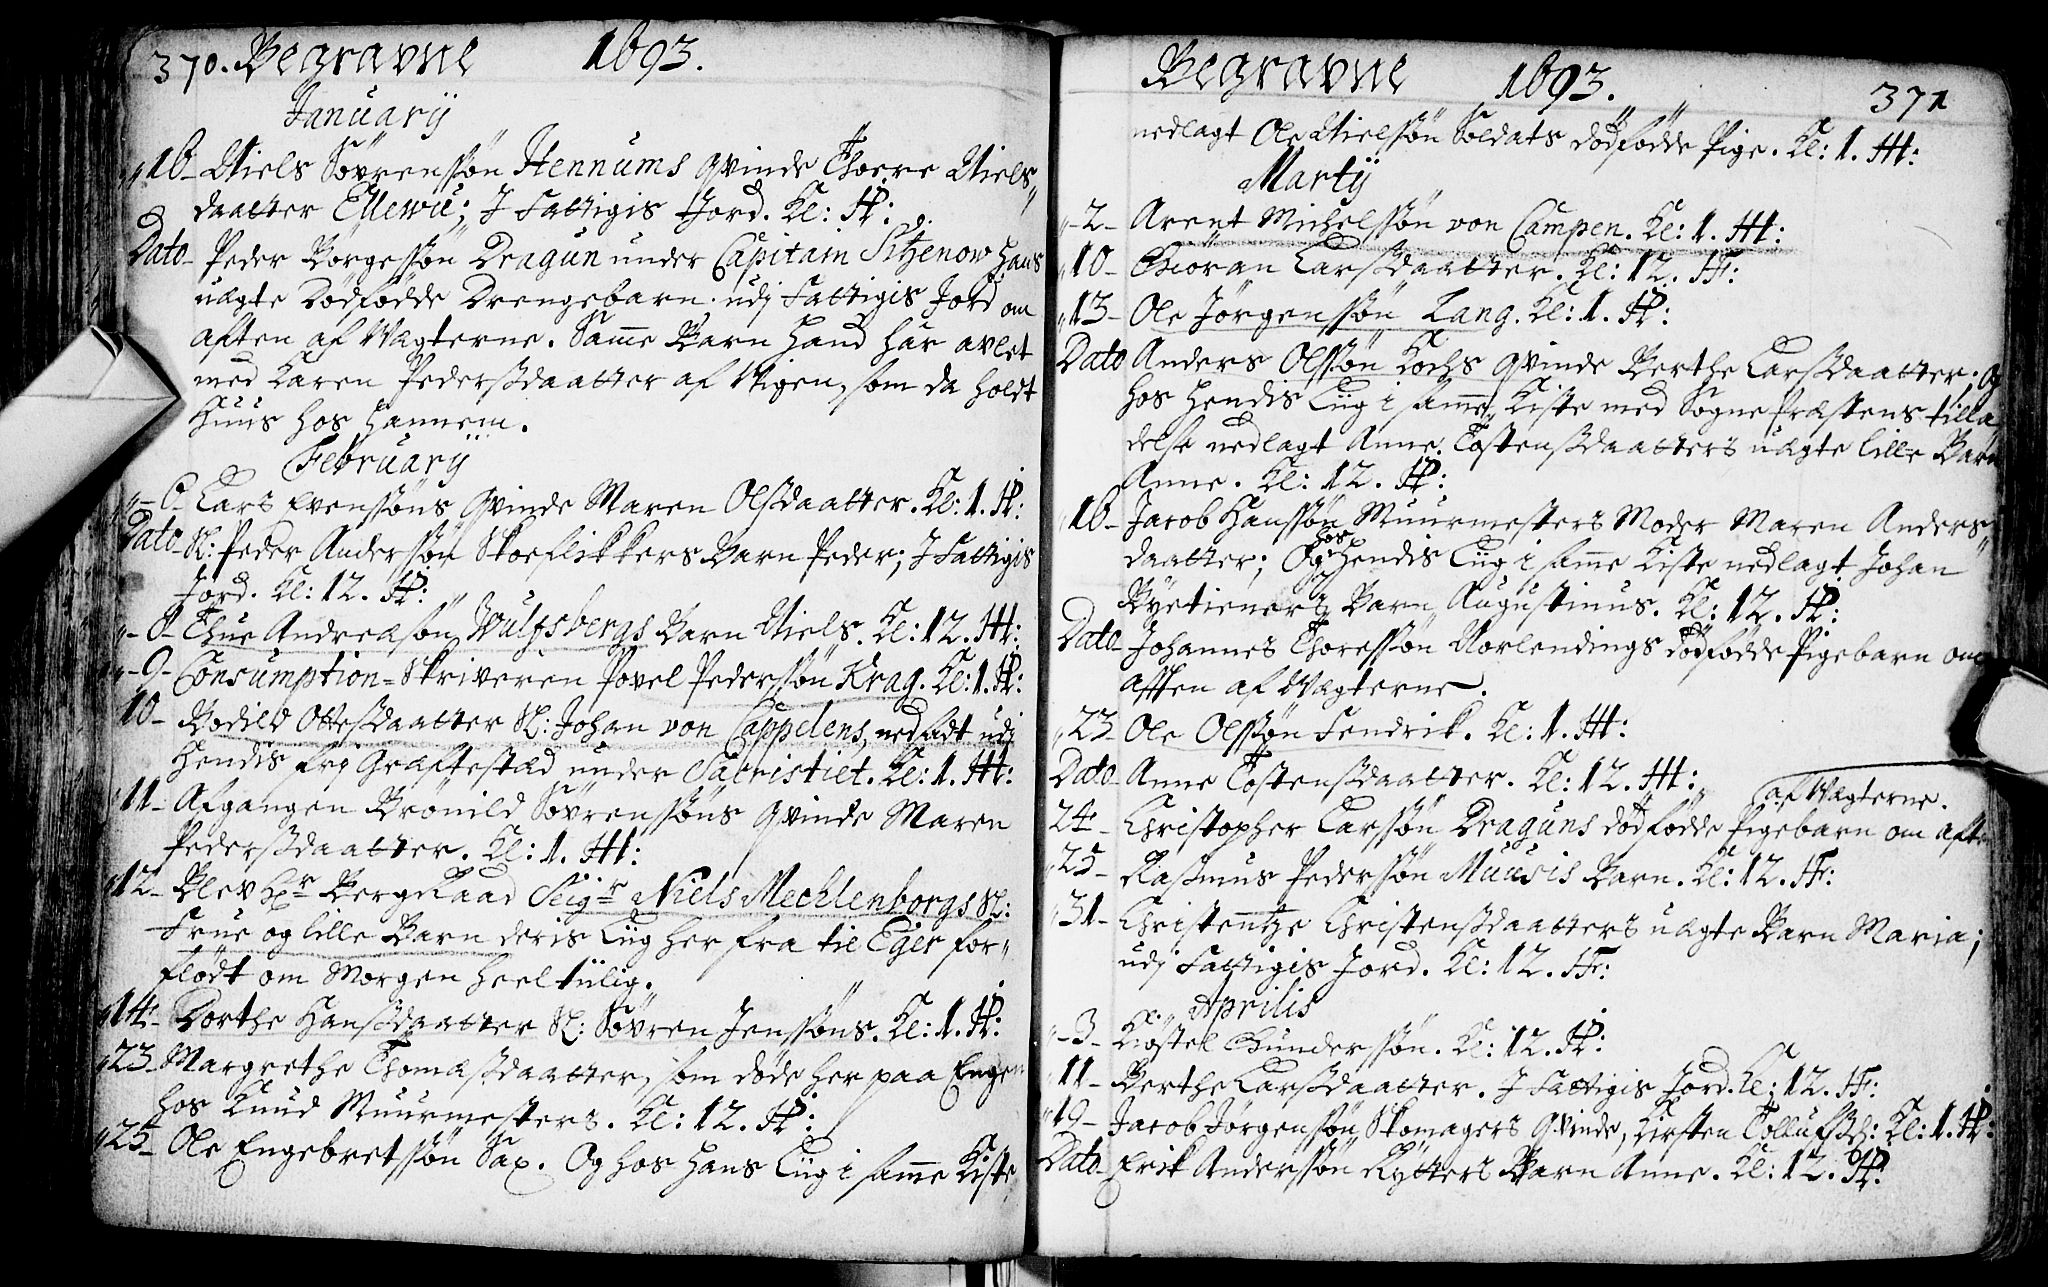 370. Begravne 1693.
Januarij
16 Niels Søvrenssøn Hennums qvinde Thorre Niels
daatter Ellewu; J Fattigis Jord. Kl: H:
Dato Peder Børgessøn Dragun under Capitain Sitzenow hans
uægte Dødfødde Drengebarn udj Fattigis Jord om
aften af Wægterne. Samme Barn hand har avlet
med Karen Pederssdaatter af Wigen, som da holdt
Huus hos hannem.
February
6 Lars Evenssøns Qvinde Maren Olssdaatter. Kl: 1. H:
Dato Sl: Peder Anderssøn Skoeflikkers Barn Peder; J Fattigis
Jord. Kl: 12. H:
8 Thue Andreæsøn Wulfsbergs Barn Niels. Kl: 12. H:
9 Consumption-Skriveren Povel Pederssøn Krag. Kl: 1. H:
10 Bodild Ottessdaatter Sl: Johan von Cappelens, nedsadt udj
hendis frj Graftestæd under Sacristiet. Kl: 1. H:
11 Afgangen Brønild Søvrenssøns Qvinde Maren
Pederssdaatter. Kl: 1. H:
12 Blev Hr BergRaad Seigr Niels Mechlenborgs Sl:
Frue og lille Barn deris Liig her fra til Eger for-
flødt om Morgen heel tiilig.
14 Dorthe Hanssdaatter Sl: Søvren Jenssøns. Kl: 1. H:
23 Margrethe Thomæssdaatter, som døde her paa Engen
hos Knud Muurmesters. Kl: 12. H:
25 Ole Engebretssøn Sax. Og hos hans Liig i samme Kiste
Begravne 1693. 371
nedlagt Ole Nielssøn Soldats dødfødde Pige. Kl: 1. H:
Martij
2 Arent Michelssøn von Campen. Kl: 1. H:
10 Giøran Larssdaatter. Kl: 12. H:
13 Ole Jørgenssøn Lang. Kl: 1. H:
Dato Anders Olssøn Kochs qvinde Berthe Larssdaatter. Og
hos hendis Liig i samme Kiste med Sogne Præstens tilla
delse nedlagt Anne Tostenssdaatters uægte lille Barn
Anne. Kl: 12. H:
16 Jacob Hanssøn Muurmesters Moder Maren Anders
daatter; Og hos hendis Liig i samme Kiste nedlagt Johan
Byetieners Barn Augustinus. Kl: 12. H:
Dato Johannes Thoressøn Norlendings dødfødde Pigebarn om
aften af Wægterne.
23 Ole Olssøn Fendrik. Kl: 1. H:
Dato Anne Tostenssdaatter. Kl: 12. H:
af Wægterne.
24 Christopher Larssøn Draguns dødfødde Pigebarn om afte
25 Rasmus Pederssøn Muusis Barn. Kl: 12. H:
31 Christentze Christenssdaatters uægte Barn Maria;
udj Fattigis Jord. Kl: 12. H:
Aprilis
3 Kiøstel Gunderssøn. Kl: 12. H:
11 Berthe Larssdaatter. J Fattigis Jord. Kl: 12. H:
19 Jacob Jørgenssøn Skomagers Qvinde, Kirsten Tollufssd: Kl: 1. H:
Dato Erik Anderssøn Rytters Barn Anne. Kl: 12. H: